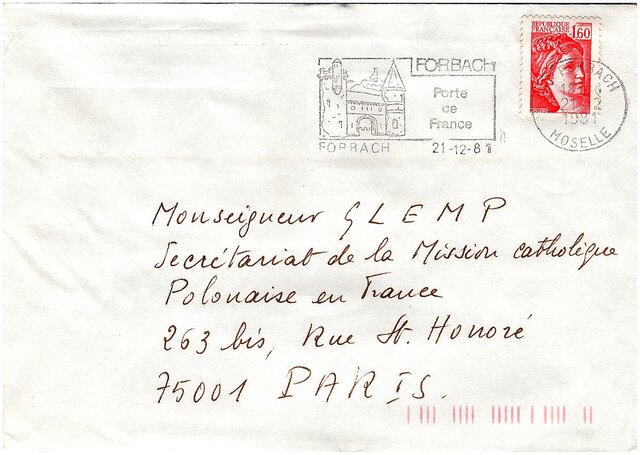 REPUBLIQUE
FRANÇAISE 1,60
FORBACH
Porte
de
France
FORBACH 21-12-81
21-12
1981
MOSELLE
Monseigneur GLEMP
Secrétariat de la Mission catholique
Polonaise en France
263 bis, Rue St. Honoré
75001 PARIS.